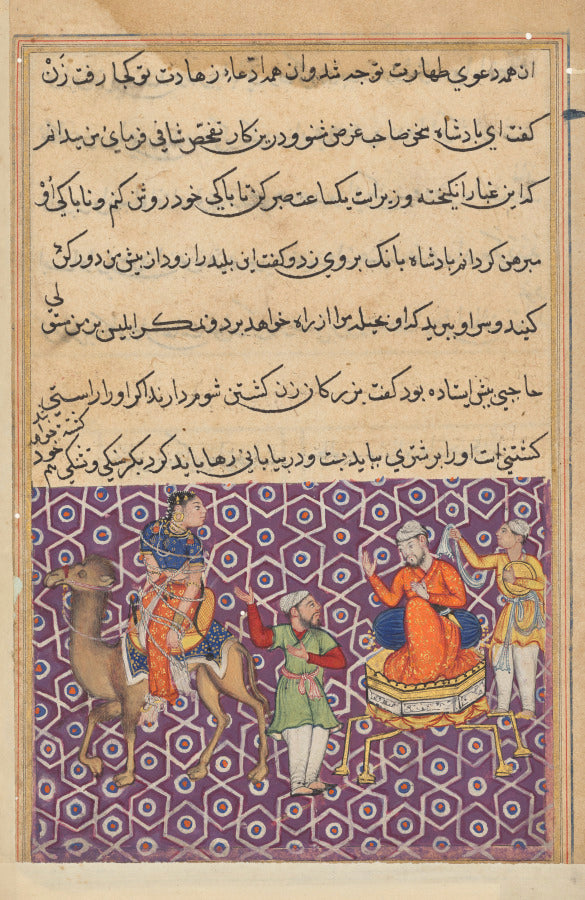 ان همه دعوي طهارت توجه شد و ان همه ادعاء زهادت تو کجا رفت زن
کفت اي بادشاه سخن صاحب غرض مشنو و درین کار تفحص شافي فرماي من میدانم
که این غبار انکیخته وزیر است یکساعت صبر کن تا پاکي خود روشن کنم و ناپاکي او
مبرهن کردانم بادشاه بانک بروي زد و کفت این پلید را زود از پیش من دور کن
کیند و سر او ببرید که او بحیله مرا از راه خواهد برد و بمکر ابلیس بر من
حاجبي پیش ایستاده بود کفت بزرکان زن کشتن شوم دارند اکر او را راستي
کشتني است او را بر شتري بباید بست و در بیاباني رها باید کرد دیکر